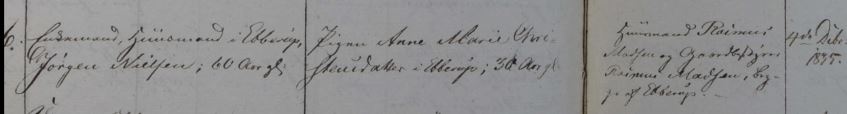 6. Enkemand, Huusmand i Ebberup,
Jørgen Nielsen; 60 Aar gl;
Pigen Anne Marie Chri-
stensdatter i Ebberup; 38 Aar gl
Huusmand Rasmus
Madsen og Gaardbestyrer
Rasmus Madsen, beg-
ge af Ebberup.
4de Debr.
1835.